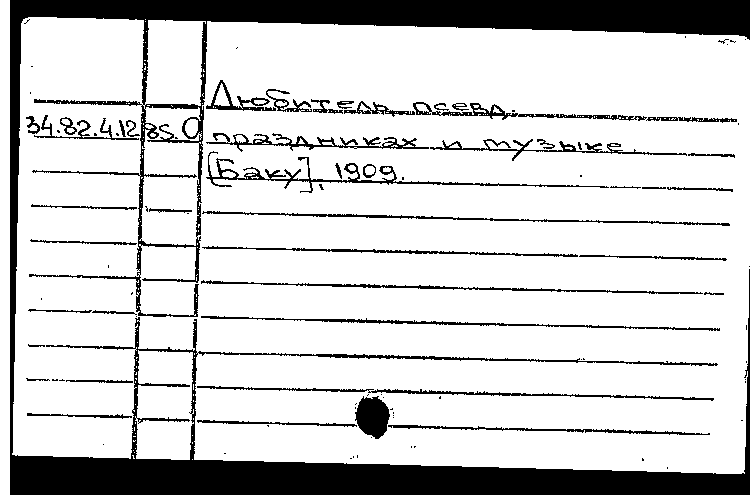 Любитель, псевд.
34.82.4.12 85. О праздниках и музыке.
[Баку], 1909.